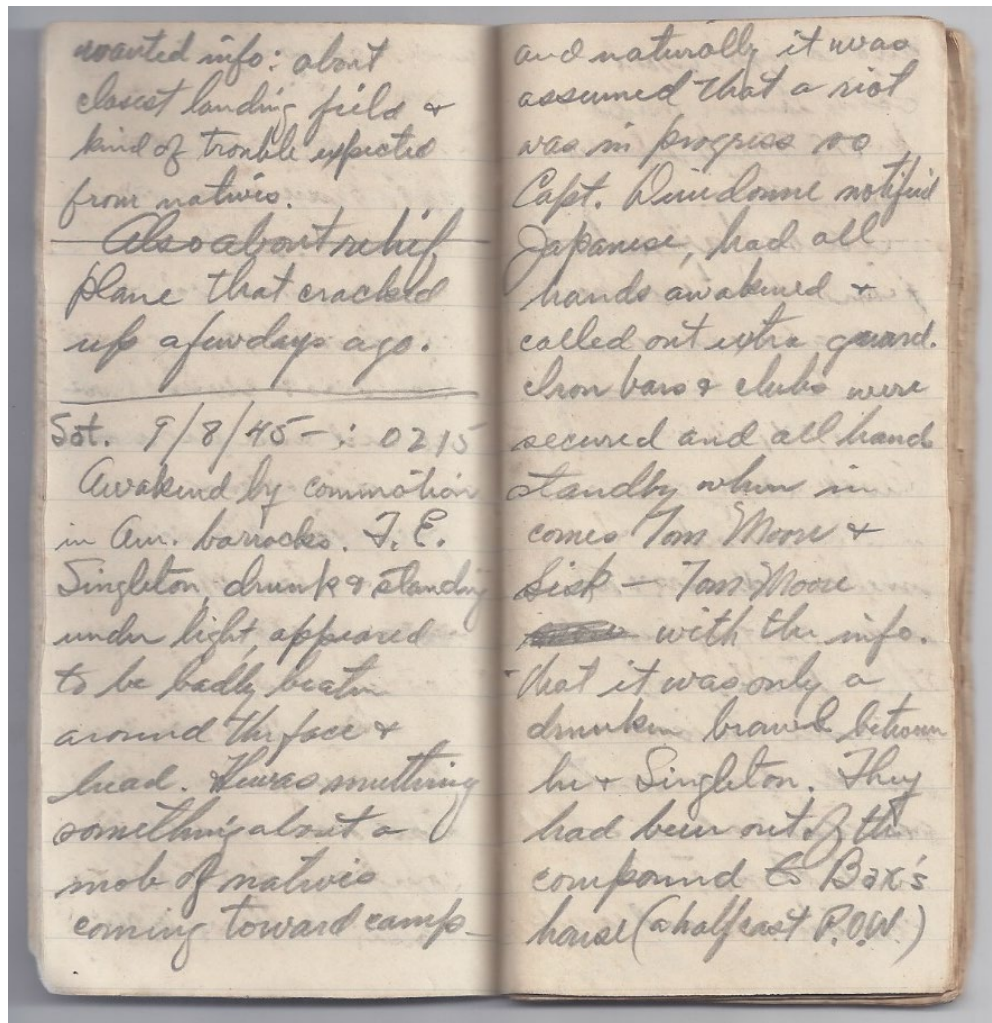 wanted info: about
closest landing field &
kind of trouble expected
from natives.
Also about relief
plane that cracked
up a few days ago.
Sat. 9/8/45 - : 0215
Awakend by commotion
in Am. barracks. F. E.
Singleton, drunk & standing
under light, appeared
to be badly beaten
around the face &
head. He was muttering
something about a
mob of natives
coming toward camp
and naturally it was
assumed that a riot
was in progress so
Capt. notified
Japanese, had all
hands awakened &
called out extra guard.
Iron bars & clubs were
secured and all hands
standby when in
comes Tom Moore &
Sisk - Tom Moore
with the info.
that it was only a
drunken brawl between
he & Singleton. They
had been out of the
compound to Bax's
house (a halfcast P.O.W.)